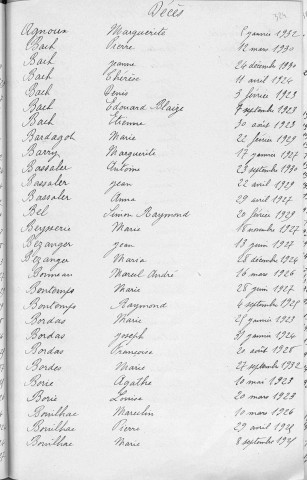 Décès
Agnoux Marguerite 8 janvier 1932
Bach Pierre 12 mars 1930
Bach Jeanne 24 décembre 1930
Bach Thérèse 11 avril 1924
Bach Denis 3 février 1923
Bach Edouard Blaize 7 septembre 1923
Bach Etienne 30 août 1923
Bardagot Marie 22 février 1929
Barry Marguerite 17 janvier
Bassaler Antoine 23 septembre 1930
Bassaler Jean 22 avril 1929
Bassaler Anna 29 avril 1927
Bel Simon Raymond 20 février 1929
Beysserie Marie novembre 1927
Bézanger Jean 13 juin 1927
Bézanger Maria 28 décembre 1924
Marcel André 16 mars 1926
Bontemps Marie 28 juin 1927
Bontemps Raymond 4 septembre
Bordas Marie janvier 1923
Bordas Joseph janvier 1924
Bordas Françoise 20 août
Bordes Marie 27 septembre 1932
Borie Agathe 10 mai 1923
Borie Louise 20 mars 1923
Bouilhac Marcelin 10 mars 1926
Bouilhac Pierre 29 avril
Bouilhac Marie 8 septembre